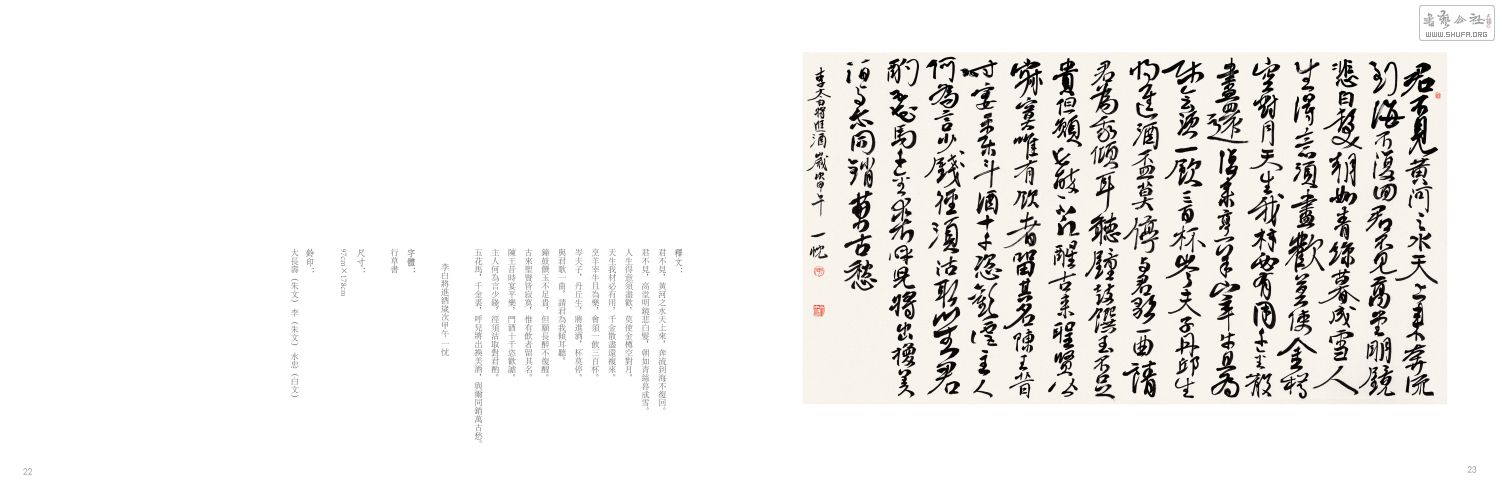 書藝公社
WWW.SHUFA.ORG
君不見黃河之水天上來奔流
到海不復回君不見高堂明鏡
悲白髮朝如青絲暮成雪人
生得意須盡歡莫使金樽
空對月天生我材必有用千金散
盡還復來烹羊宰牛且為
樂會須一飲三百杯岑夫子丹邱生
將進酒盃莫停與君歌一曲請
君為我傾耳聽鐘鼓饌玉不足
貴但願長醉不醒古來聖賢皆
寂寞唯有飲者留其名陳王昔
時宴平樂斗酒十千恣歡謔主人
何為言少錢徑須沽取對君
酌五花馬千金裘呼兒將出換美
酒與爾同銷萬古愁
李太白將進酒歲次甲午 一忱
釋文：
君不見，黃河之水天上來，奔流到海不復回。
君不見，高堂明鏡悲白髮，朝如青絲暮成雪。
人生得意須盡歡，莫使金樽空對月。
天生我材必有用，千金散盡還復來。
烹羊宰牛且為樂，會須一飲三百杯。
岑夫子，丹丘生，將進酒，杯莫停。
與君歌一曲，請君為我傾耳聽。
鐘鼓饌玉不足貴，但願長醉不復醒。
古來聖賢皆寂寞，惟有飲者留其名。
陳王昔時宴平樂，鬥酒十千恣歡謔。
主人何為言少錢，徑須沽取對君酌。
五花馬，千金裘，呼兒將出換美酒，與爾同銷萬古愁。
李白將進酒歲次甲午 一忱
字體：
行草書
尺寸：
97cm×178cm
鈐印：
大長壽（朱文） 李（朱文） 永忠（白文）
22
23